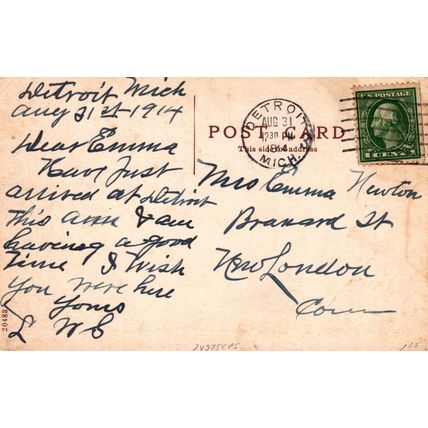 Detroit Mich
Aug 31st 1914
Dear Emma
Have Just
arrived at Detroit
this and am
having a good
time I wish
you were here
Yours
L W E
POST CARD
This side address
DETROIT
AUG 31
1230 PM
1914
MICH.
U.S. POSTAGE
1 CENT
Mrs Emma Newton
Branard St
New London
Conn
20483
24975CPS